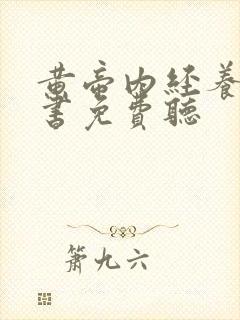 黄帝内経養
書免費聽
箫九六